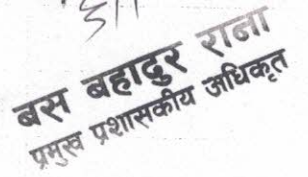 बस बहादुर राना
प्रमुख प्रशासकीय अधिकृत